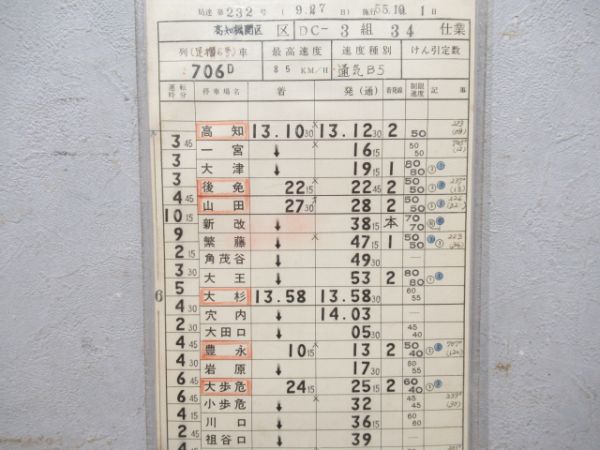 局達 第232号 (9.27日) 施行 55.10.1日
高知機関区 区 DC- 3 組 34 仕業
列(足摺6号)車 最高速度 速度種別 けん引定数
706D 85 KM/H 通気B5
運転時分 停車場名 着 発(通) 着発線 制限速度 記事
高知 13.10 30 13.12 30 2 50
3 45 一宮 ↓ 16 15 50 50
3 大津 ↓ 19 15 1 80 80
3 後免 22 15 22 45 2 50 50
4 45 山田 27 30 28 2 50 50
10 15 新改 ↓ 38 15 本 70 70
9 繁藤 ↓ 47 15 1 50 50
2 15 角茂谷 ↓ 49 30 —
3 30 大王 ↓ 53 2 80 80
5 大杉 13.58 13.58 30 60 55
4 30 穴内 ↓ 14.03 —
2 30 大田口 ↓ 05 30 45 40
4 45 豊永 10 15 13 2 50 40
4 30 岩原 ↓ 17 30 60 55
6 45 大歩危 24 15 25 15 2 60 40
6 45 小歩危 ↓ 32 45 45
4 15 川口 ↓ 36 15 60 60
2 45 祖谷口 ↓ 39 —
6